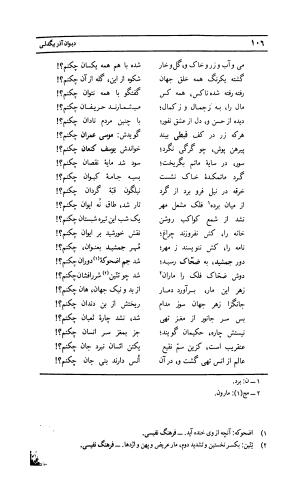 ۱۰۶
دیوان آذر بیگدلی
می و آب و زر و خاک و، گل و خار شده با هم همه یکسان چکنم؟!
گشته یکرنگ همه خلق جهان شکوه از این، گله از آن چکنم؟!
رفته گفته شده ناکس، همه کس گفتگو با همه نتوان چکنم؟!
مال را، به ز جمال و ز کمال؛ میشمارند حریفان چکنم؟!
دیده از حسن و، دل از عشق نفور؛ با چنین مردم نادان چکنم؟!
هرکه زر در کف قبطی بیند گویدش: موسی عمران چکنم؟!
پیرهن پوش، چو گرگی نگرد؛ خواندش یوسف کنعان چکنم؟!
سور، در سایهٔ ماتم بگریخت؛ سود شد مایهٔ نقصان چکنم؟!
گرد ماتمکدهٔ خاک نشست بسه جامهٔ کیوان چکنم؟!
خرقه در نیل فرو برد از گرد نیلگون قبهٔ گردان چکنم؟!
از میان برده۱ فلک مشعل مهر تار شد، طاق نُه ایوان چکنم؟!
نشد از شمع کواکب روشن یک شب این تیره شبستان چکنم؟!
خانه را، کش نفروزند چراغ؛ نقش خورشید بر ایوان چکنم؟!
نامه را، کش ننویسند ز مهر؛ مُهر جمشید بعنوان، چکنم؟!
دور جمشید، به ضحّاک رسید؛ شد جم اضحوکهٔ(۱) دوران چکنم؟!
دوش ضحّاک فلک را ماران۲ شد چو تنّین(۲) شررافشان چکنم؟!
زهر این مار، برآورد دمار از بد و نیک جهان، هان چکنم؟!
جانگزا زهر جهان سوز مدام ریختش از بن دندان چکنم؟!
بس سر جانور از مغز تهی شد، نشد چارهٔ ثعبان چکنم؟!
نیستش چاره، حکیمان گویند؛ جز بمغز سر انسان چکنم؟!
عنقریب است، کزین سمّ نقیع یکتن انسان نبرد جان چکنم؟!
عالم از انس تهی گشت و، در آن اُنس دارند بنی جان چکنم؟!
۱ ــ ن: برد.
۲ ــ مج(۱): مارون.
۱) اضحوکه: آنچه از وی خنده آید. ــ فرهنگ نفیسی.
۲) تِنّین: بکسر نخستین و تشدید دوم، مار عریض و پهن و اژدها. ــ فرهنگ نفیسی.